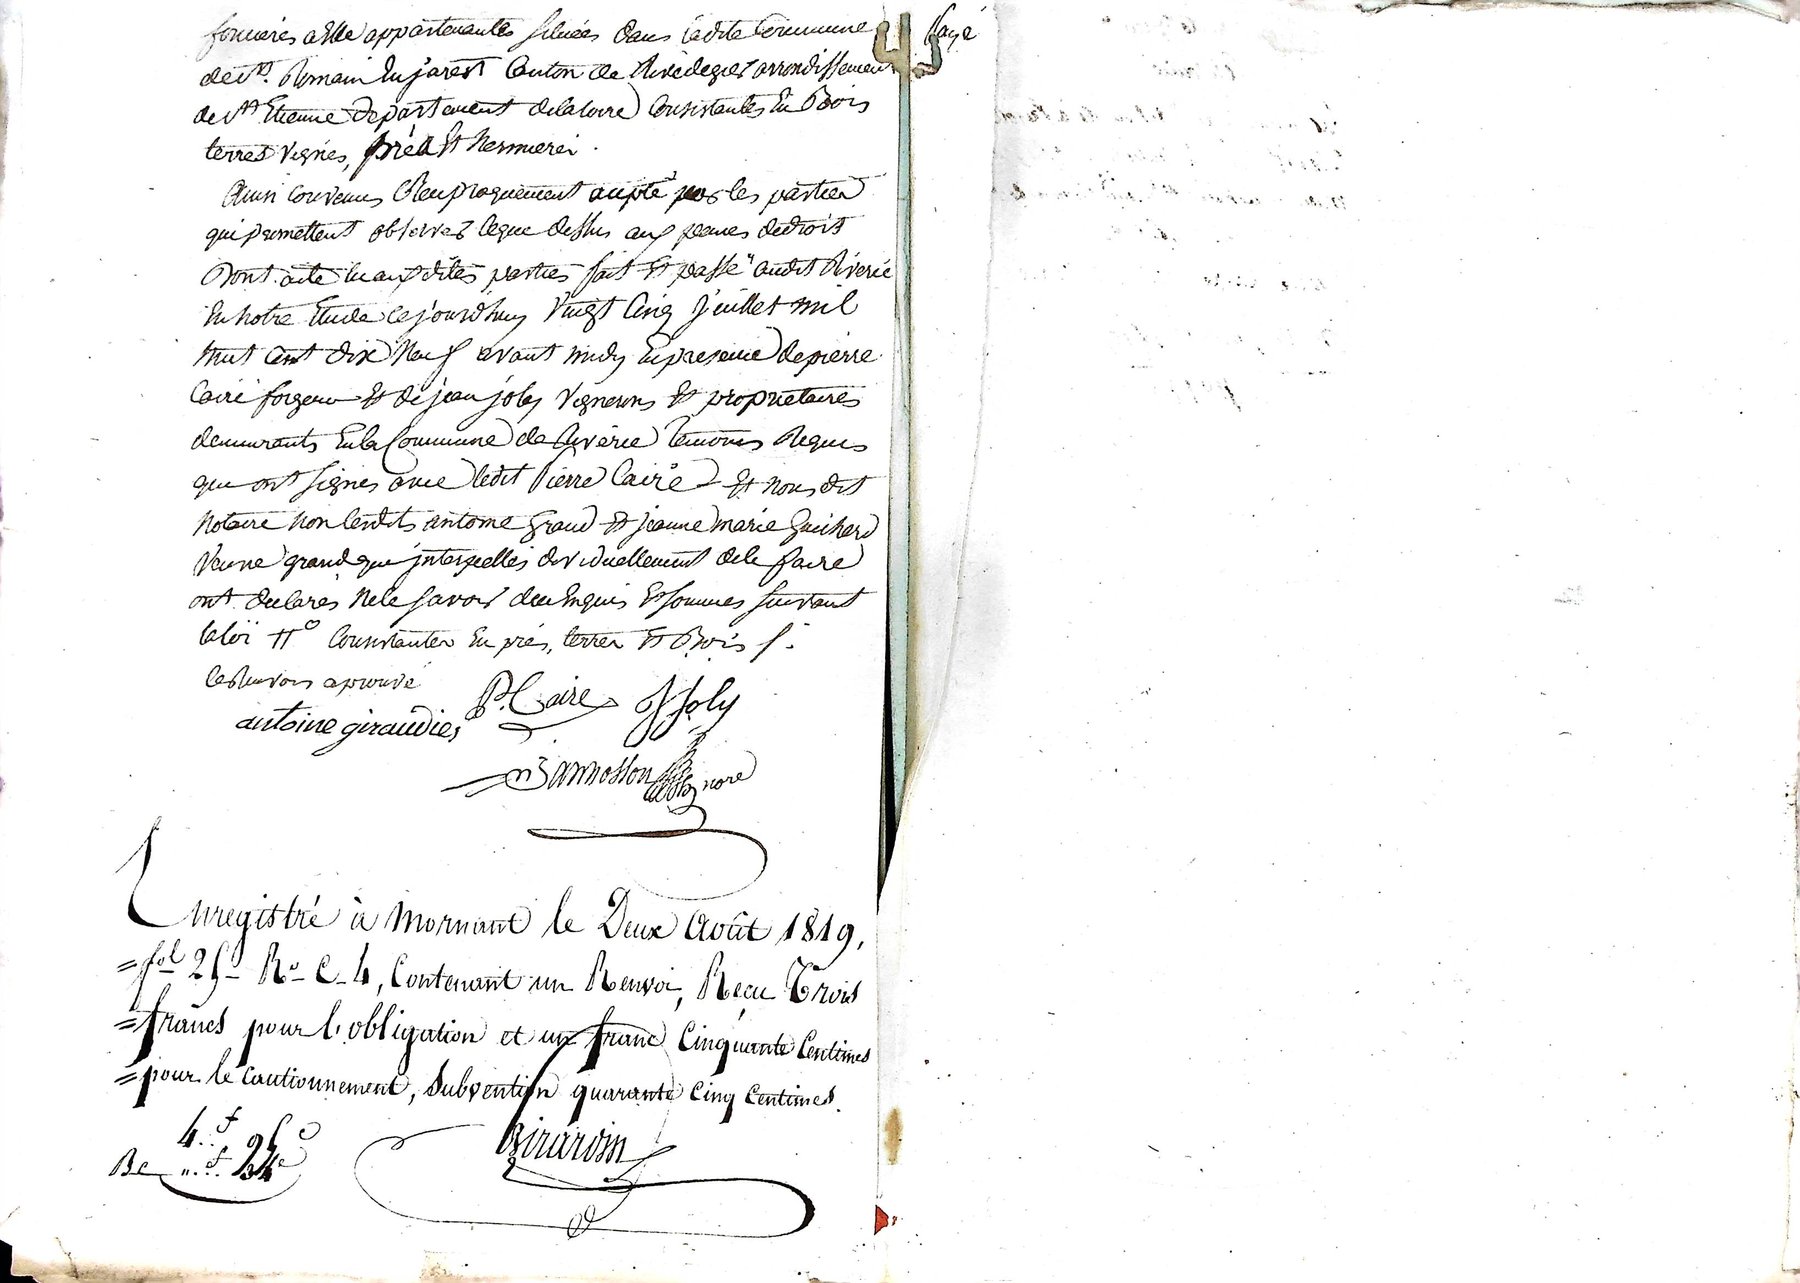 foncières a Elle appartenantes situées dans ladite Commune
de St. Romain En jarest Canton de Rivedegier arrondissement
de St Etienne Departement dela Loire Consistantes En Bois
terres vignes, prés Et
Ainsi convenus Reciproquement aupté par les parties
qui promettent observer leque dessus aux peines dedroit
Dont acte lu aux dites parties fait Et passé audit Riverie
En notre Etude cejourd'huy Vingt Cinq Juillet mil
huit Cent dix Neuf avant midy En presence depierre
Caire forgeur Et de jean joly Vignerons Et proprietaires
demeurants En la Commune de Riverie Temoins Requis
qui ont signés avec ledit Pierre Caire Et nous dit
Notaire non lesdits antoine Et jeanne marie
Veuve que interpellés dividuellement dele faire
ont declarés Nele savoir dece Enquis Et sommés suivant
la loi Consistantes En prés, terres Et Bois /.
les Renvois aprouvé
antoine giraudier P. Caire J Joly
nore
Enregistré à Mornant le Deux Août 1819,
=fol 25 Ro C. 4, Contenant un Renvoi, Reçu Trois
=francs pour l'obligation et un franc Cinquante Centimes
=pour le cautionnement, Subvention quarante cinq Centimes.
4..f 95c
Be "..f. 34c
Girardin
Payé